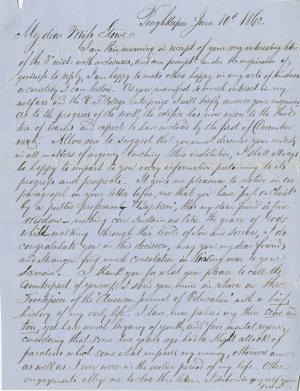 Poughkeepsie June 10th 1862
My dear Miss
I am this morning in receipt of your very interesting letter
of the inst. with enclosures, and am prompt under the inspiration of
yourself to reply, I am happy to make others happy in any acts of kindness
or courtesy I can bestow. As you manifest so much interest in my
welfare and the V. F. College enterprize I will briefly answer your enquiries
as to the progress of the work, the edifice has now risen to the third
tier of beams and expect to have enclosed by the first of December
next. Allow me to suggest that you must dismiss your modesty
in all matters of enquiry touching this institution, I shall always
be happy to impart to you every information pertaining to its
progress and prospects. It gives me pleasure to notice in one
paragraph in your letter before me that you have "put on Christ
by a public profession" "Baptism", this my dear friend is true
wisdom - nothing can sustain us like the grace of God
while walking through this world of sin and sorrow, I do
congratulate you in this decision, may you my dear friend
and stranger find much consolation in living near to your
Saviour. I thank you for what you please to call the
counterpart of yourself. I send you mine in return on the
Frontispiece of the American Journal of Education with a brief
history of my early life. I have now passed my three score and
ten, yet have much buoyancy of youth, and fine mental vigour,
considering that some two years ago had a slight attack of
paralysis which some what impairs my memory, otherwise am
as well as I ever were in the earlier period of my life. Other
engagements oblige me to close this letter. I subscribe myself